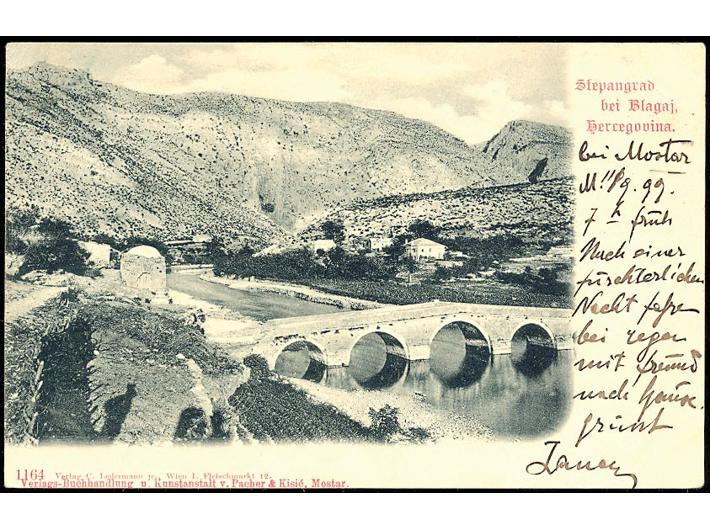 Stepangrad
bei Blagaj,
Hercegovina.
bei Mostar
M. 11/9. 99.
7 h früh
Nach einer
fürchterlichen
Nacht fahre
bei regen
mit freund
nach Hause.
grüsst
1164 Verlag C. Ledermann jr., Wien I. Fleischmarkt 12.
Verlags-Buchhandlung u. Kunstanstalt v. Pacher & Kisić, Mostar.